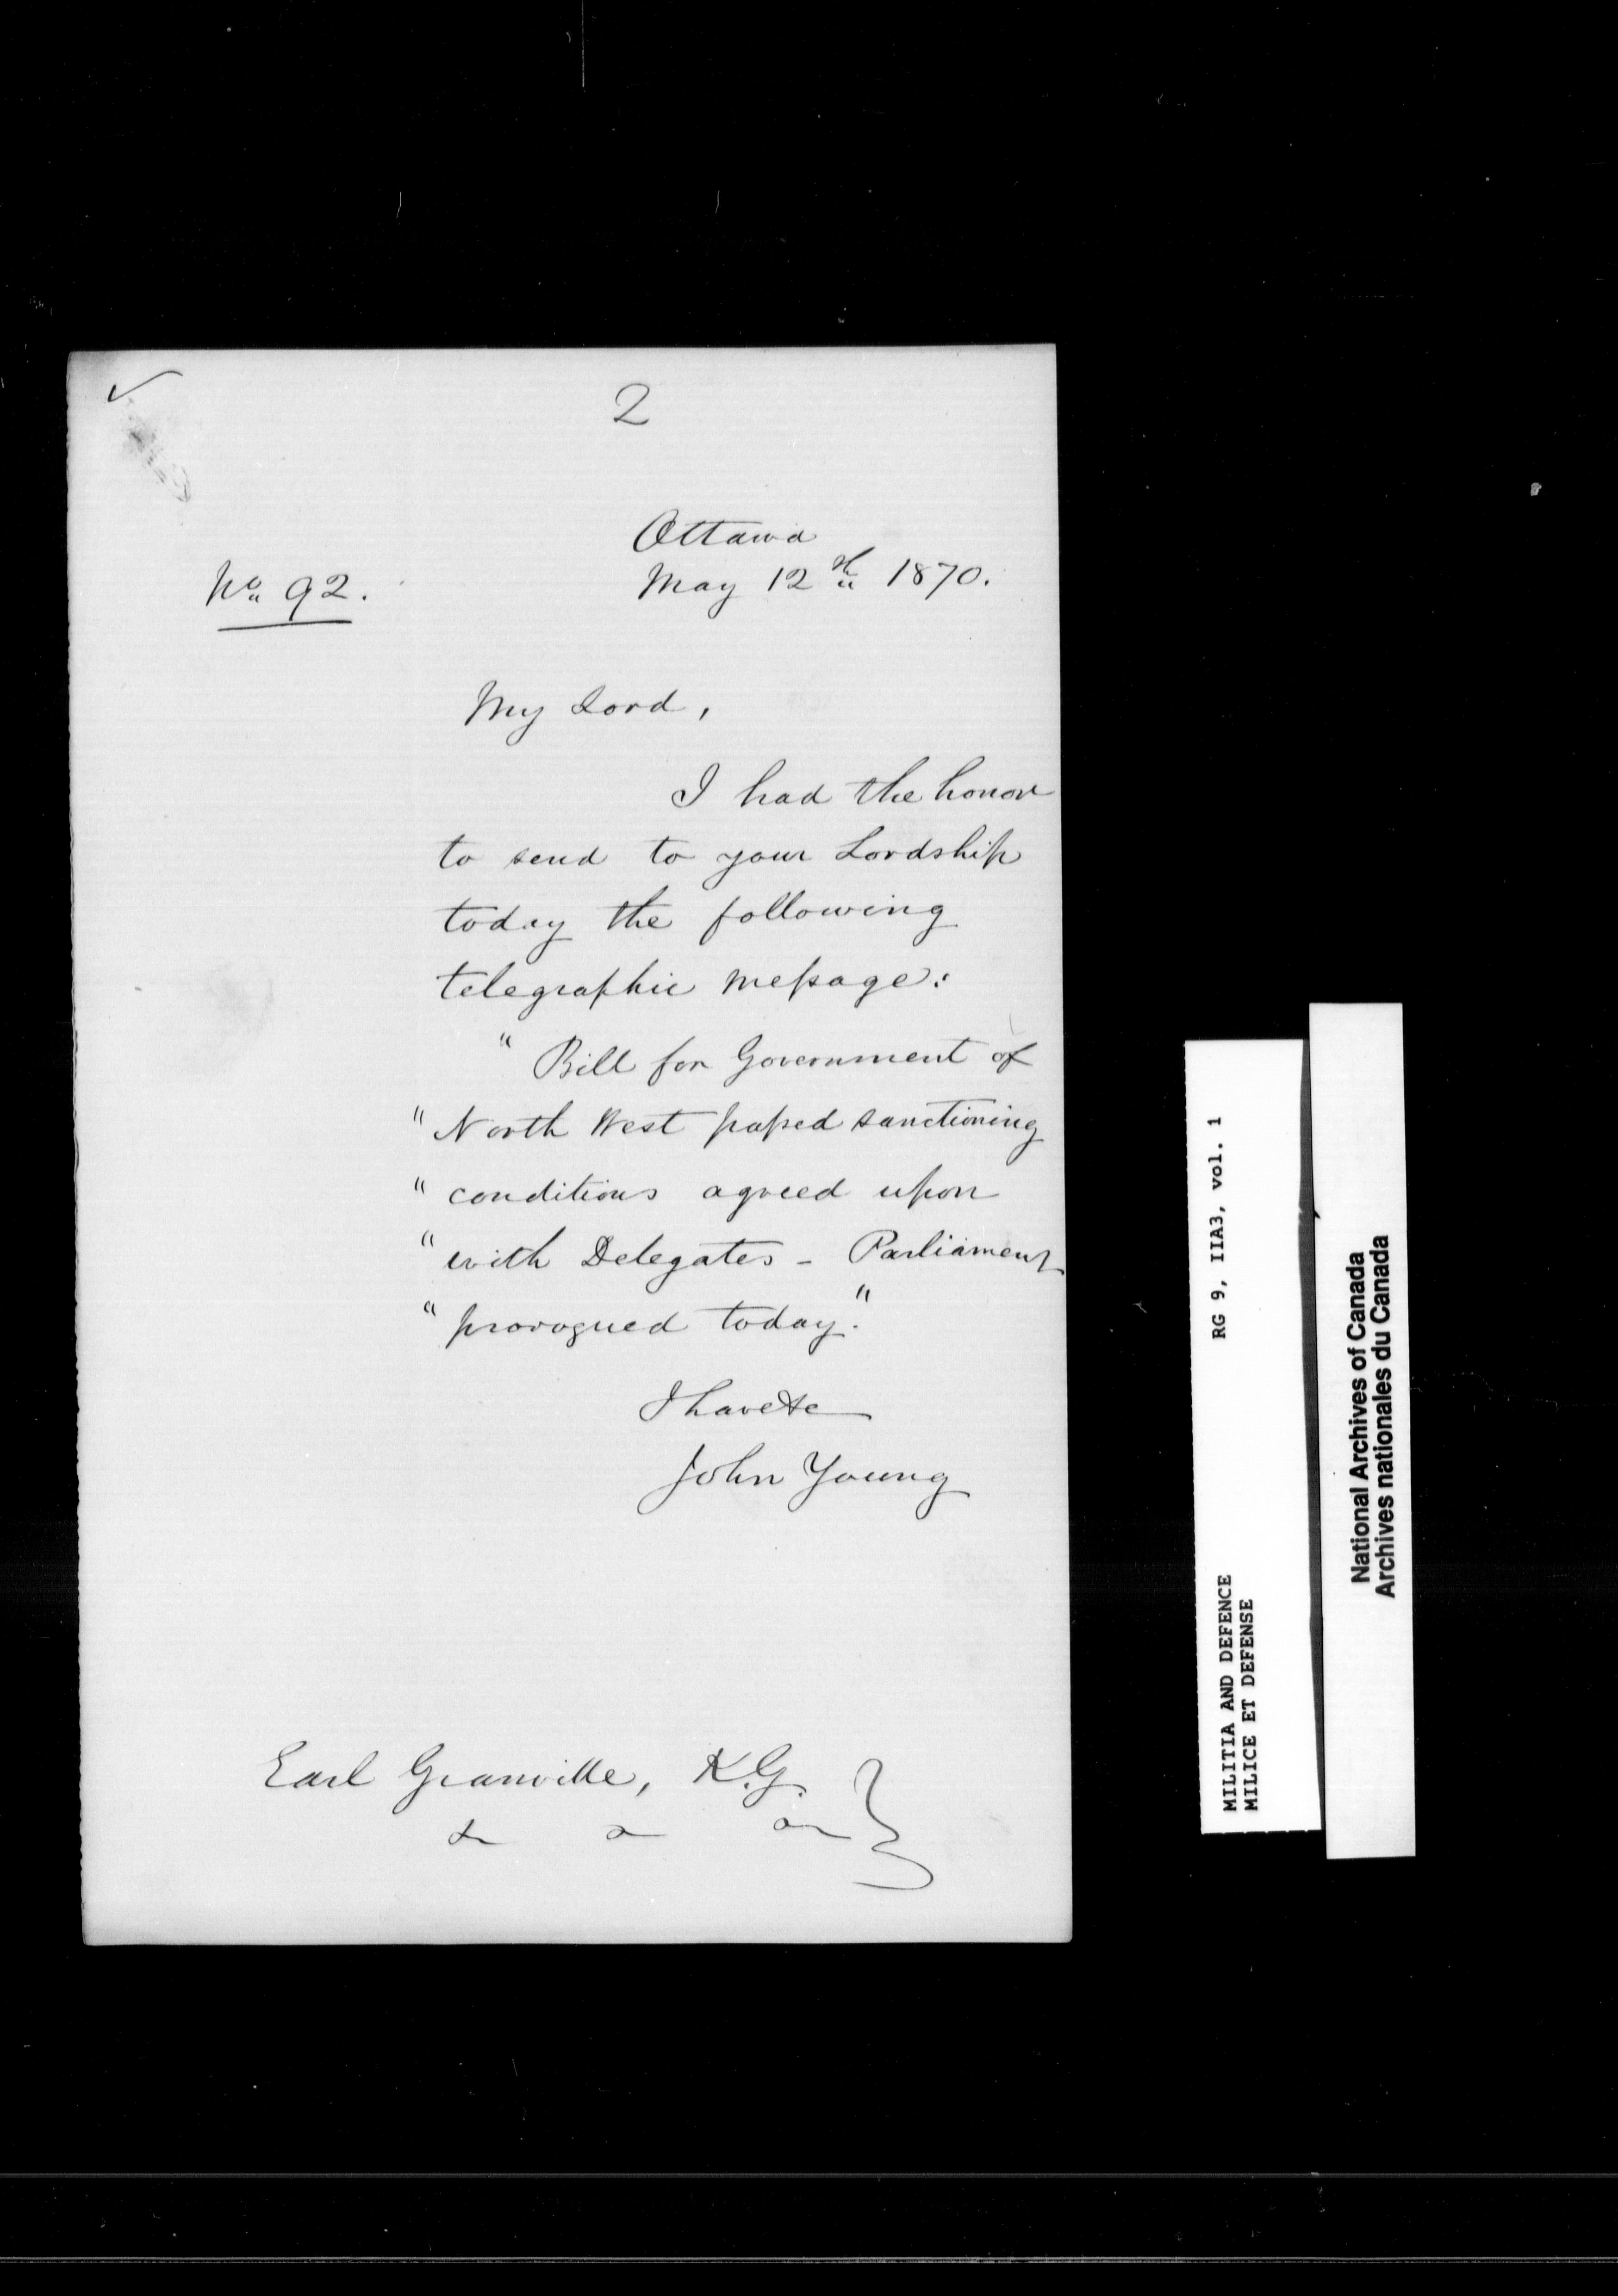 2
Ottawa
No. 92.
May 12th 1870.
My Lord,
I had the honor
to send to your Lordship
today the following
telegraphic message:
" Bill for Government of
" North West passed sanctioning
" conditions agreed upon
" with Delegates - Parliament
" prorogued today."
I have &c
John Young
Earl Granville, K.G.
& & &
RG 9, IIA3, vol. 1
MILITIA AND DEFENCE
MILICE ET DEFENSE
National Archives of Canada
Archives nationales du Canada